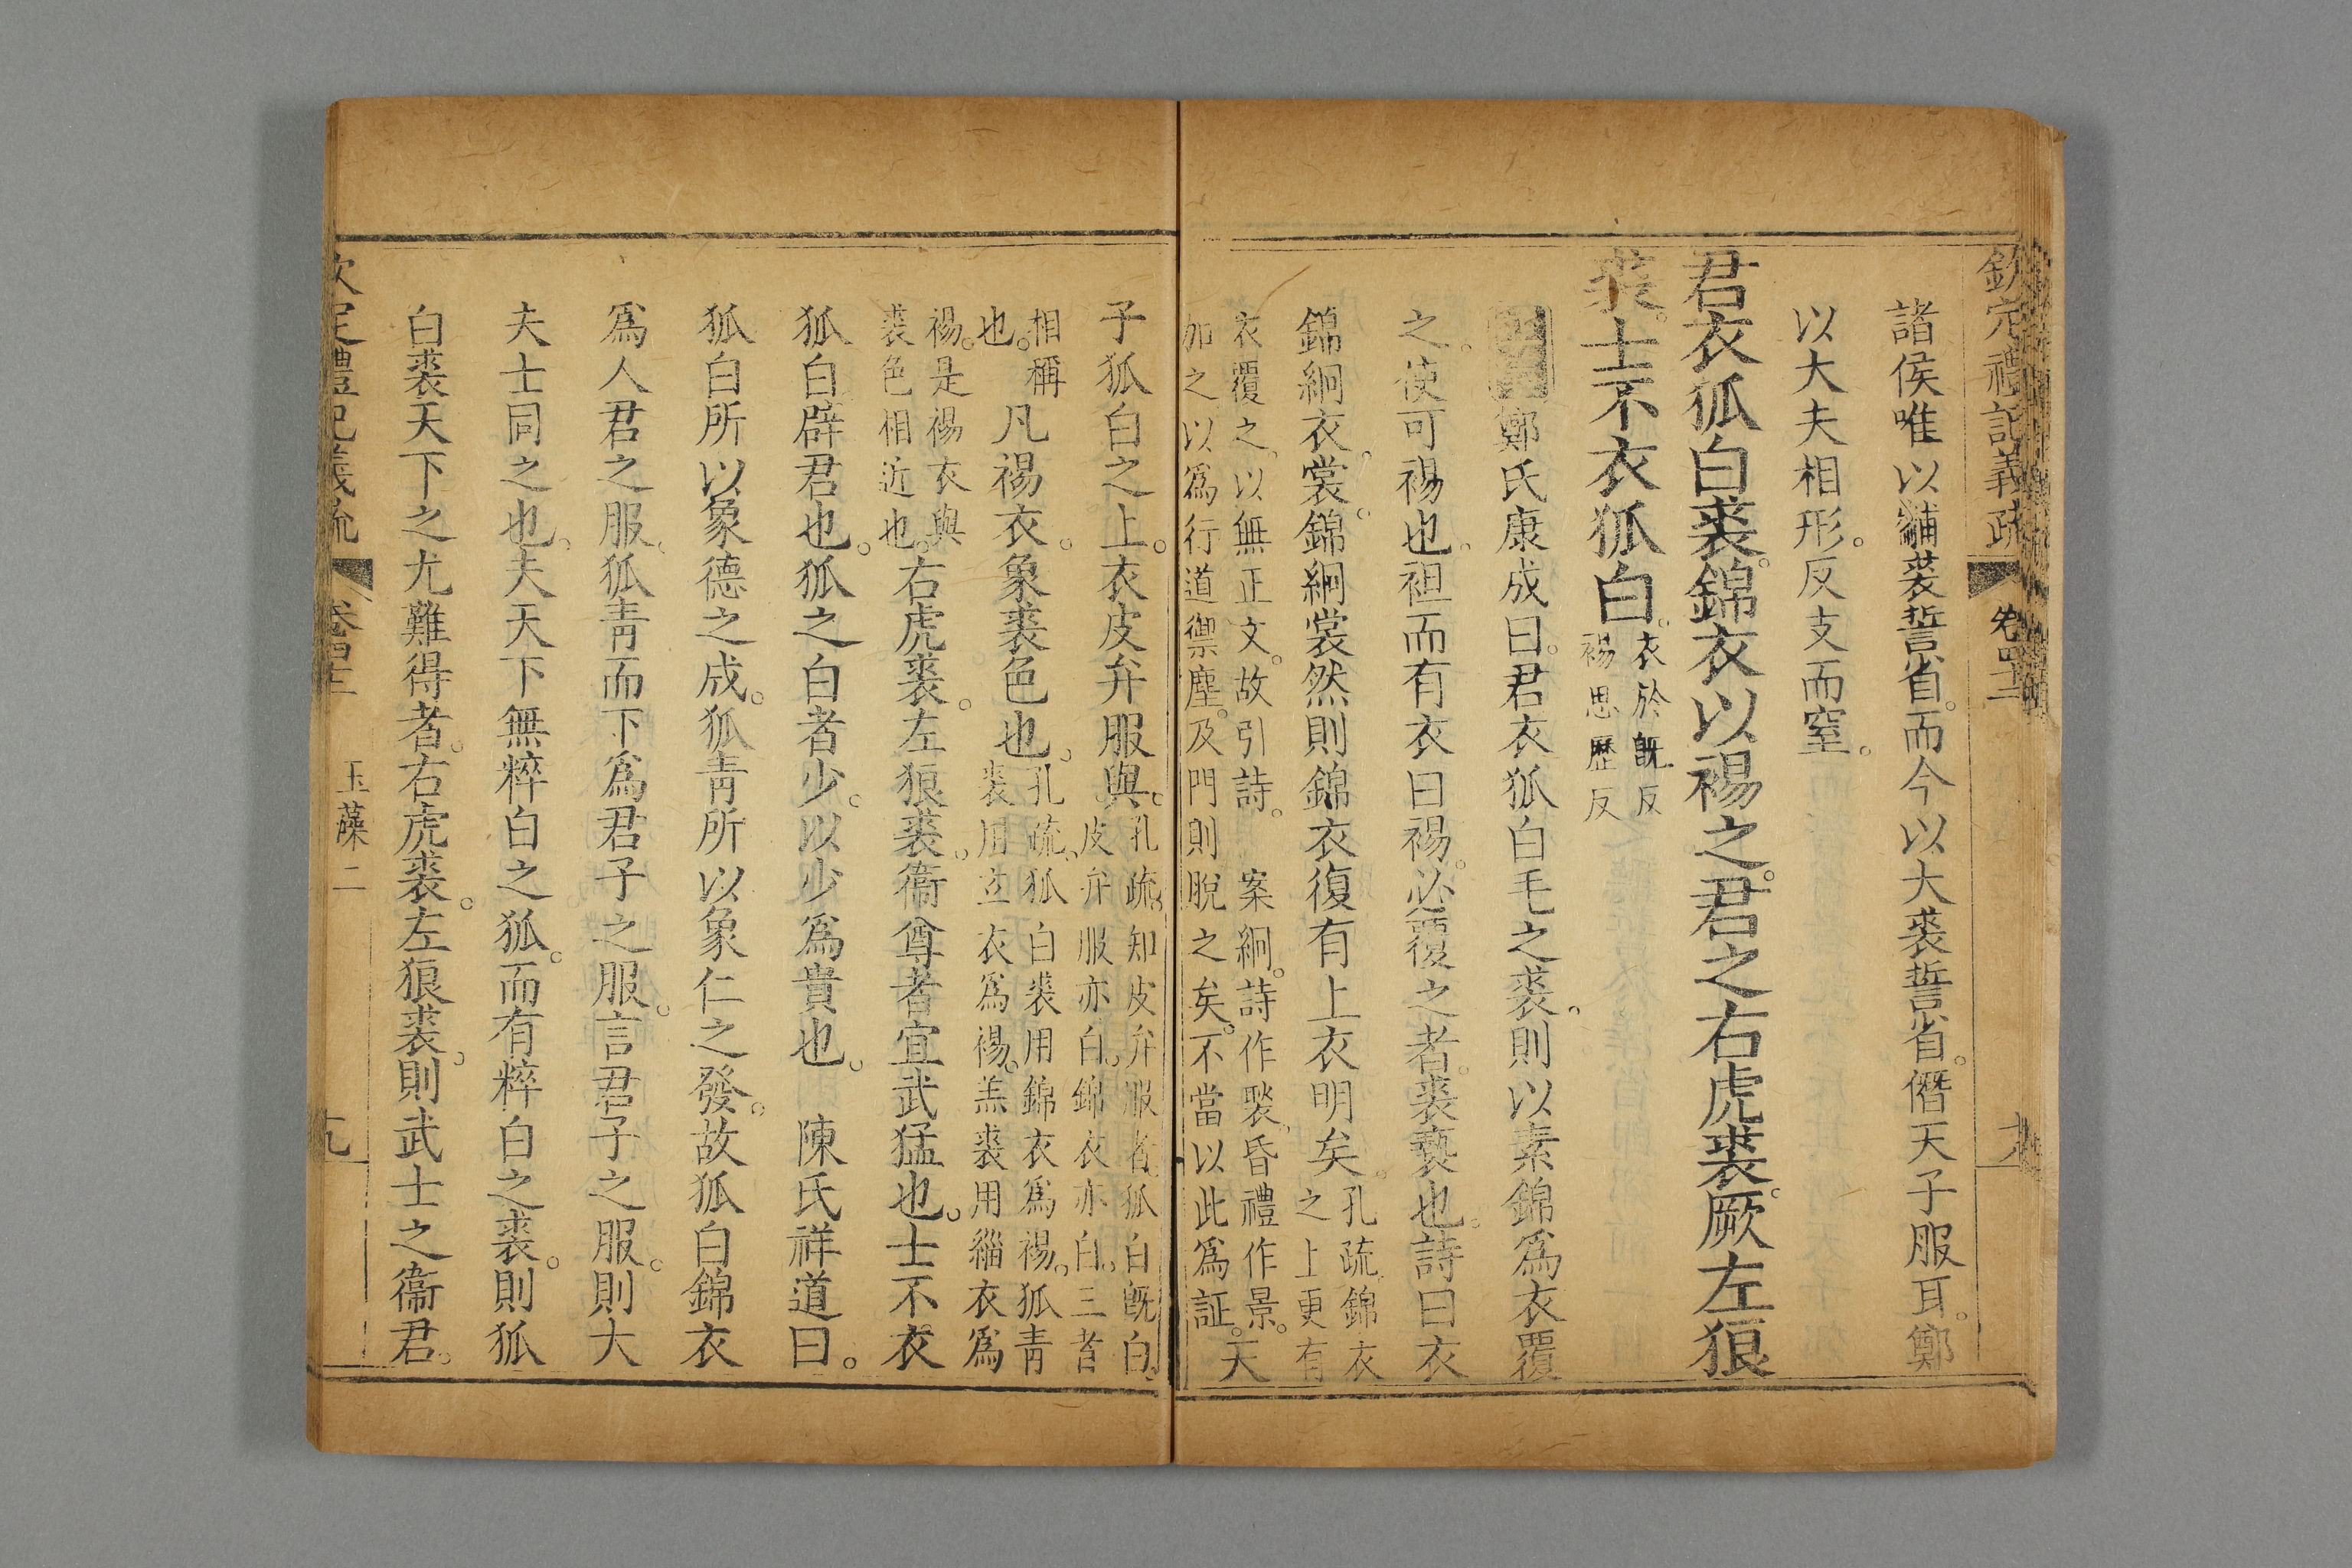 欽定禮記義疏 卷四十二
諸侯唯以黼裘誓省。而今以大裘誓省。僭天子服耳。鄭
以大夫相形。反支而窒。
君衣狐白裘。錦衣以裼之。君之右虎裘。厥左狼
裘。士不衣狐白。衣於旣反
裼思歷反
鄭氏康成曰。君衣狐白毛之裘。則以素錦爲衣覆
之。使可裼也。袒而有衣曰裼。必覆之者。裘褻也。詩曰衣
錦絅衣。裳。錦絅裳然則錦衣復有上衣明矣。孔疏錦衣
之上更有
衣覆之。以無正文。故引詩。 案絅。詩作褧。昏禮作景。
加之以爲行道禦塵。及門則脫之矣。不當以此爲証。天
子狐白之上。衣皮弁服與。孔疏。知皮弁服者。狐白旣白。
皮弁服亦白。錦衣亦白。三者
相稱
也。凡裼衣。象裘色也。孔疏。狐白裘用錦衣爲裼。狐青
裘用玄衣爲裼。羔裘用緇衣爲
裼。是裼衣與
裘色相近也。右虎裘。左狼裘。衞尊者宜武猛也。士不衣
狐白辟君也。狐之白者少。以少爲貴也。 陳氏祥道曰。
狐白所以象德之成。狐青所以象仁之發。故狐白錦衣
爲人君之服。狐青而下爲君子之服。言君子之服。則大
夫士同之也。夫天下無粹白之狐。而有粹白之裘。則狐
白裘天下之尤難得者。右虎裘。左狼裘。則武士之衞君。
欽定禮記義疏 卷四十二 玉藻二